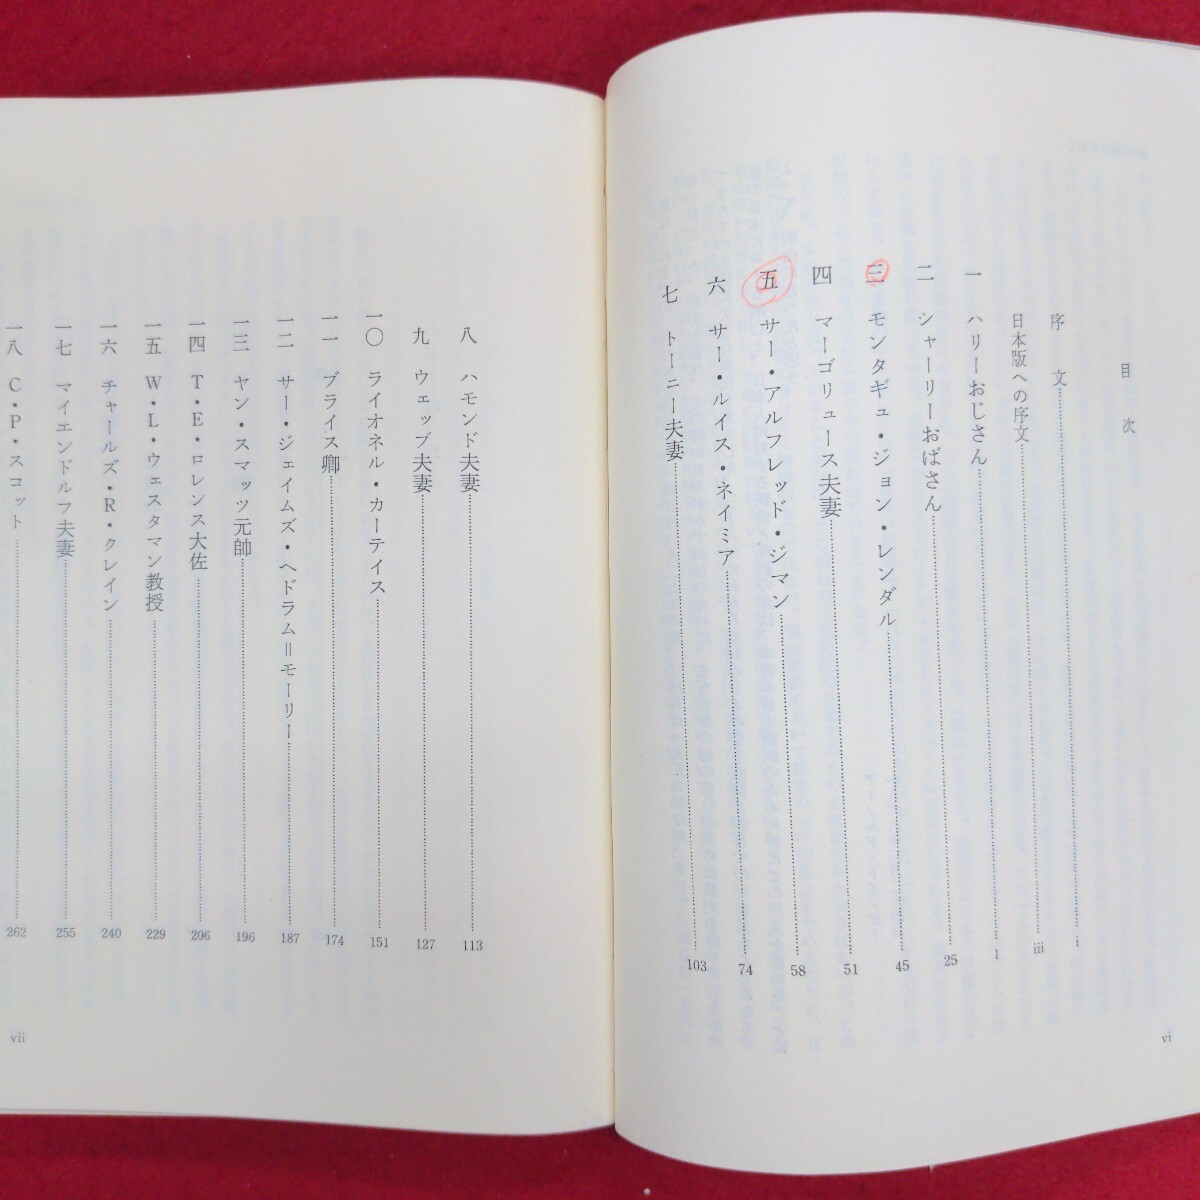 目次
序文……i
日本版への序文……iii
一 ハリーおじさん……1
二 シャーリーおばさん……25
三 モンタギュ・ジョン・レンダル……45
四 マーゴリュース夫妻……51
五 サー・アルフレッド・ジマン……58
六 サー・ルイス・ネイミア……74
七 トーニー夫妻……103
vi
八 ハモンド夫妻……113
九 ウェッブ夫妻……127
一〇 ライオネル・カーティス……151
一一 ブライス卿……174
一二 サー・ジェイムズ・ヘドラム＝モーリー……187
一三 ヤン・スマッツ元帥……196
一四 T・E・ロレンス大佐……206
一五 W・L・ウェスタマン教授……229
一六 チャールズ・R・クレイン……240
一七 マイエンドルフ夫妻……255
一八 C・P・スコット……262
vii